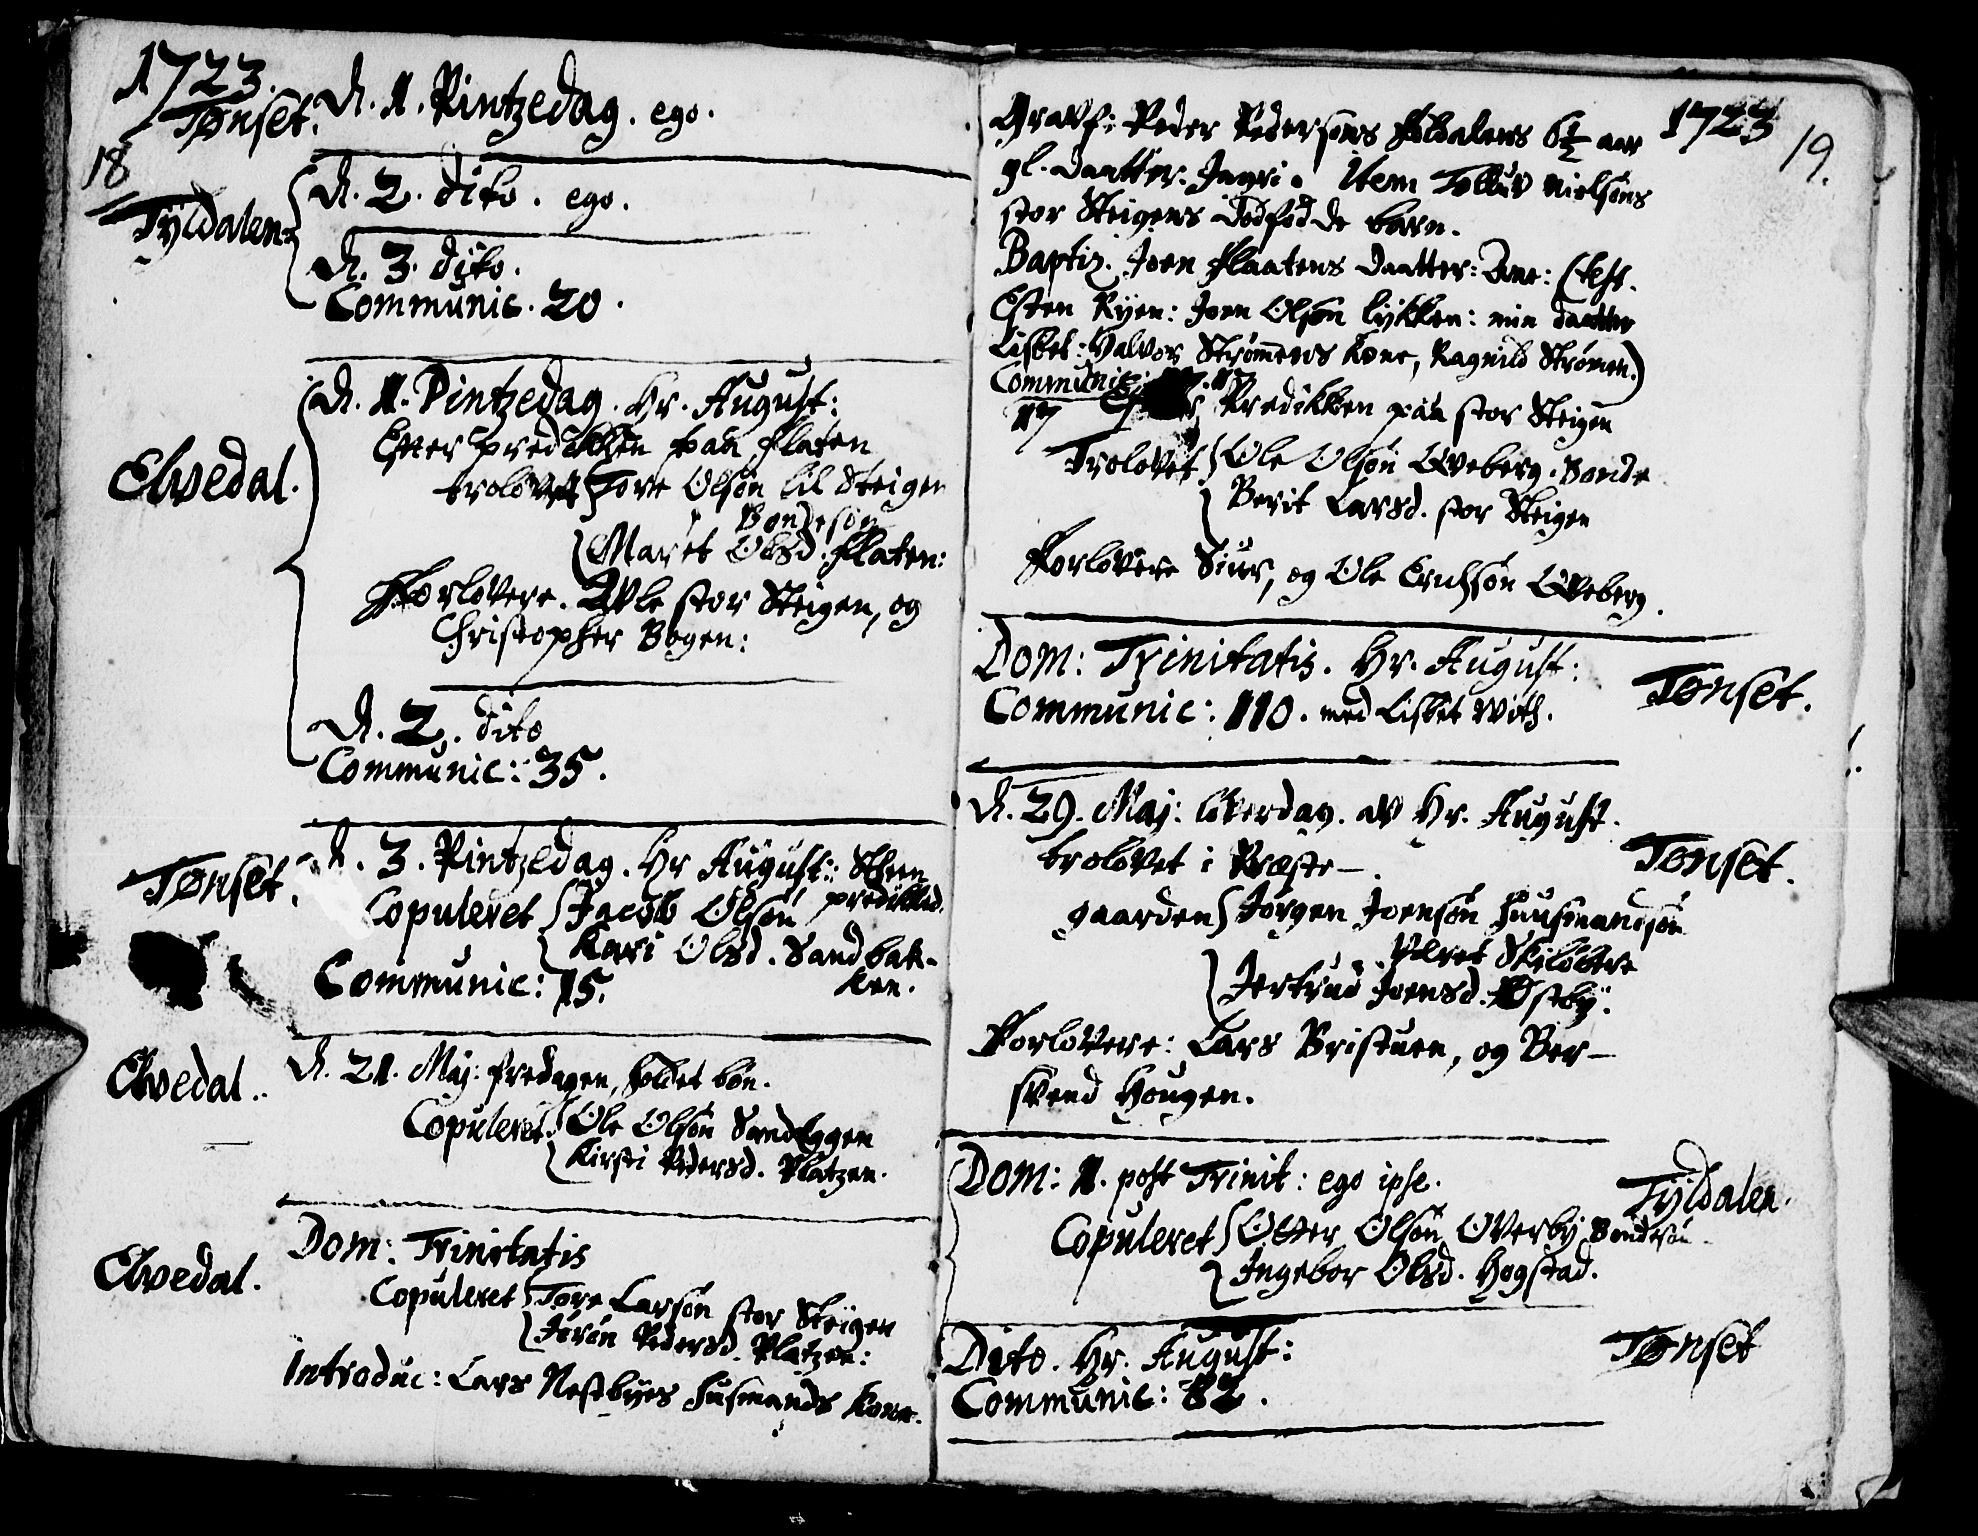 1723.
18
Tønset. D. 1. Pintzedag. ego.
Tyldalen D. 2. dito. ego.
D. 3. dito.
Communic. 20.
Elvedal. D. 1. Pintzedag. Hr. August:
Efter predikken paa Flaten
trolovet Tore Olsøn lil Steigen
Bondesøn
Maret Olsd. Flaten:
Forlovere. Ole stor Steigen, og
Christopher Bogen:
D. 2. dito
Communic: 35.
Tønset. D. 3. Pintzedag. Hr August:
predikked.
Copuleret Jacob Olsøn
Kari Olsd. Sandbak-
ken.
Communic: 15.
Elvedal. D. 21. Maj: fredagen, holdet bøn.
Copuleret Ole Olsøn Sandeggen
Kirsti Pedersd. Platzen.
Elvedal. Dom: Trinitatis
Copuleret Tore Larsøn stor Steigen
Jorøn Pedersd. Platzen:
Introduc: Lars Nestbyes Husmands Kone.
1723
19.
Gravf: Peder Pedersøns Foldalens 6½ aar
gl. Daatter: Ingri. Item Nielsøns
stor Steigens dødfødde barn.
Baptiz. Joen Flaatens Daatter: Ane: (test.
Esten Ryen: Joen Olsøn lykken: min daatter
Lisbet: Halvor Strømens Kone, Ragnild Strømen.)
Communic: 17
17 Efter Predikken paa stor Steigen
Trolovet Ole Olsøn Qveberg. Bonde
Berit Larsd. stor Steigen
Forlovere Siur, og Ole Erichsøn Qveberg.
Dom: Trinitatis. Hr. August: Tønset.
Communic: 110. med Lisbet With.
D. 29. Maj: løverdag. av Hr. August. Tønset.
trolovet i Præste-
gaarden Jørgen Joensøn Huusmandsøn
Skiløbere
Jertrud Joensd. Østby:
Forlovere: Lars Bristuen, og Ber-
svend Hougen.
Dom: 1. post Trinit: ego ipse. Tyldalen.
Copuleret Otter Olsøn Overby Bondesøn
Ingebor Olsd. Hogstad.
Dito. Hr. August: Tønset
Communic: 82.